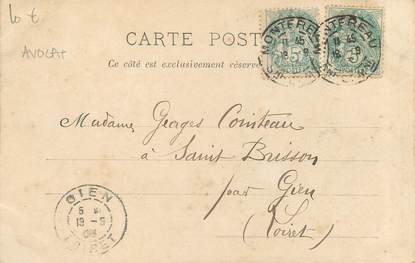 10 €
AVOCAT
CARTE POSTALE
Ce côté est exclusivement réservé
MONTEREAU
MONTEREAU
5
5
Madame Georges Cointeau
à Saint Brisson
par Gien
(Loiret)
GIEN
LOIRET